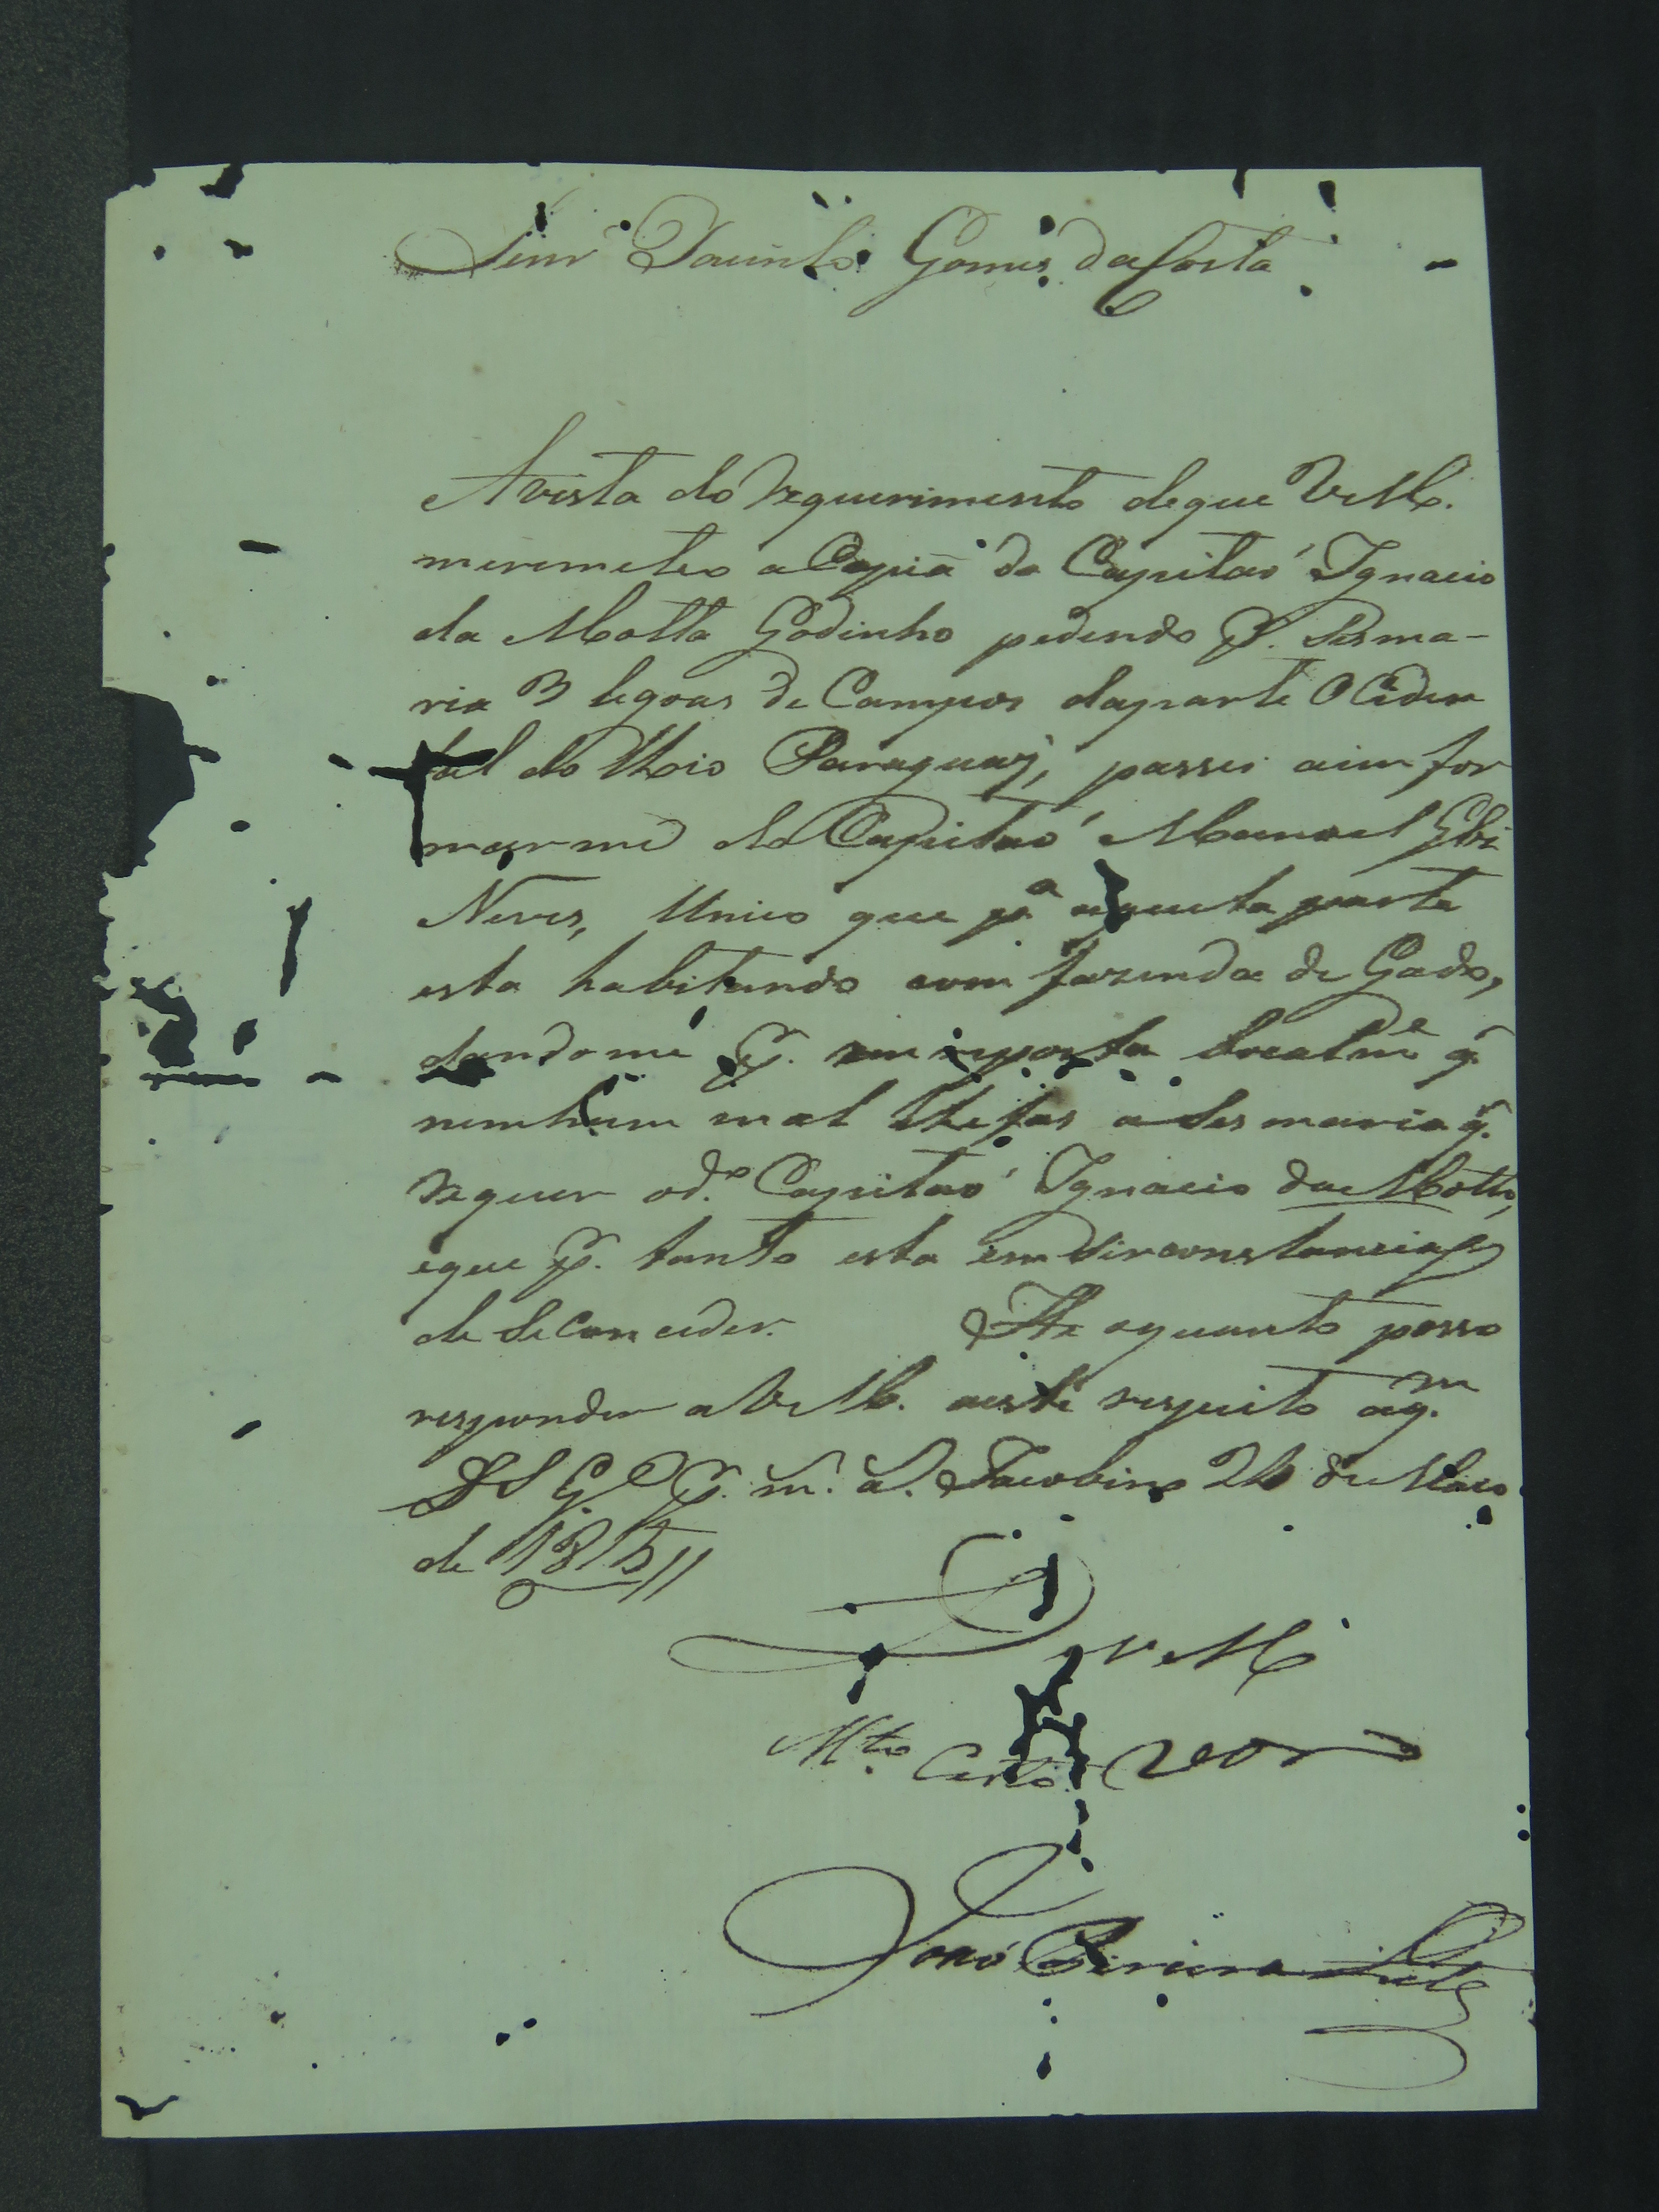 Senr. Jacinto Gomes da Costa
A vista do requerimento deque VeM.
meremeteo a Copia do Capitaõ Ignacio
da Motta Godinho pedindo P. Sesma-
ria 3 legoas de Campos daparte Ociden
tal do Rio Paraguay, passei aim for
marme do Capitaõ Manoel
Neves, Unico que pª aquela parte
esta habitando com fazenda de Gado,
dandome P. em reposta Vocalmᵉ q̃
nenhum mal lhe fas a Sesmaria q̃.
requer od.º Capitaõ Ignacio da Motta,
eque P. tanto esta em Circonstancias
de Se Conceder. He oquanto posso
responder aVeM. aeste respeito aq.ᵐ
DS G.ᵉ P. m. a. Jacobina 26 de Maio
de 1815//
De VeM
M.ᵗᵒ Certo Veor
Joaõ Pereira Leite